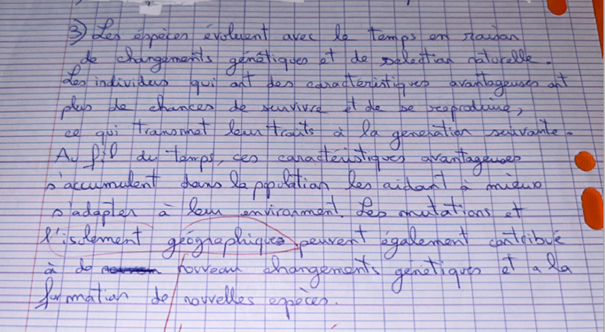 3) Les espèces évoluent avec le temps en raison
de changements génétiques et de selection naturelle.
Les individus qui ont des caractéristiques avantageuses ont
plus de chances de survivre et de se reproduire,
ce qui transmet leur traits à la generation suivante.
Au fil du temps, ces caractéristiques avantageuses
s'accumulent dans la population les aidant à mieux
s'adapter à leur environment. Les mutations et
l'isolement géographiques peuvent également contribué
à de nouveau changements génétiques et a la
formation de nouvelles espèces.